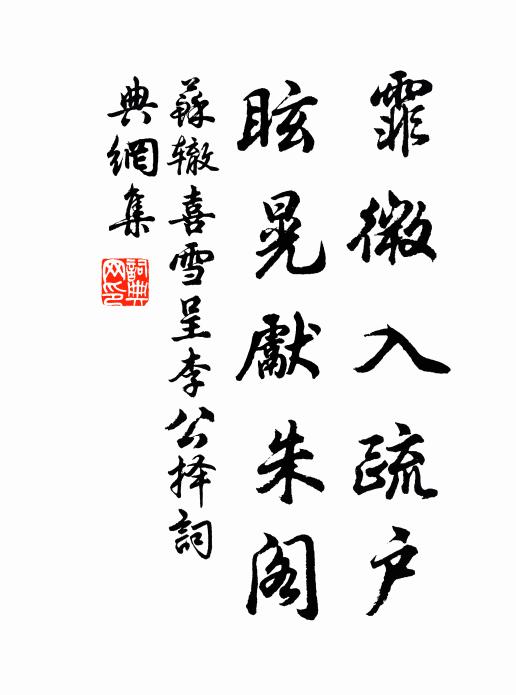 霏微入疏户
眩晃獻朱阁
蘇辙喜雪呈李公择詞
典網集
詞典网印